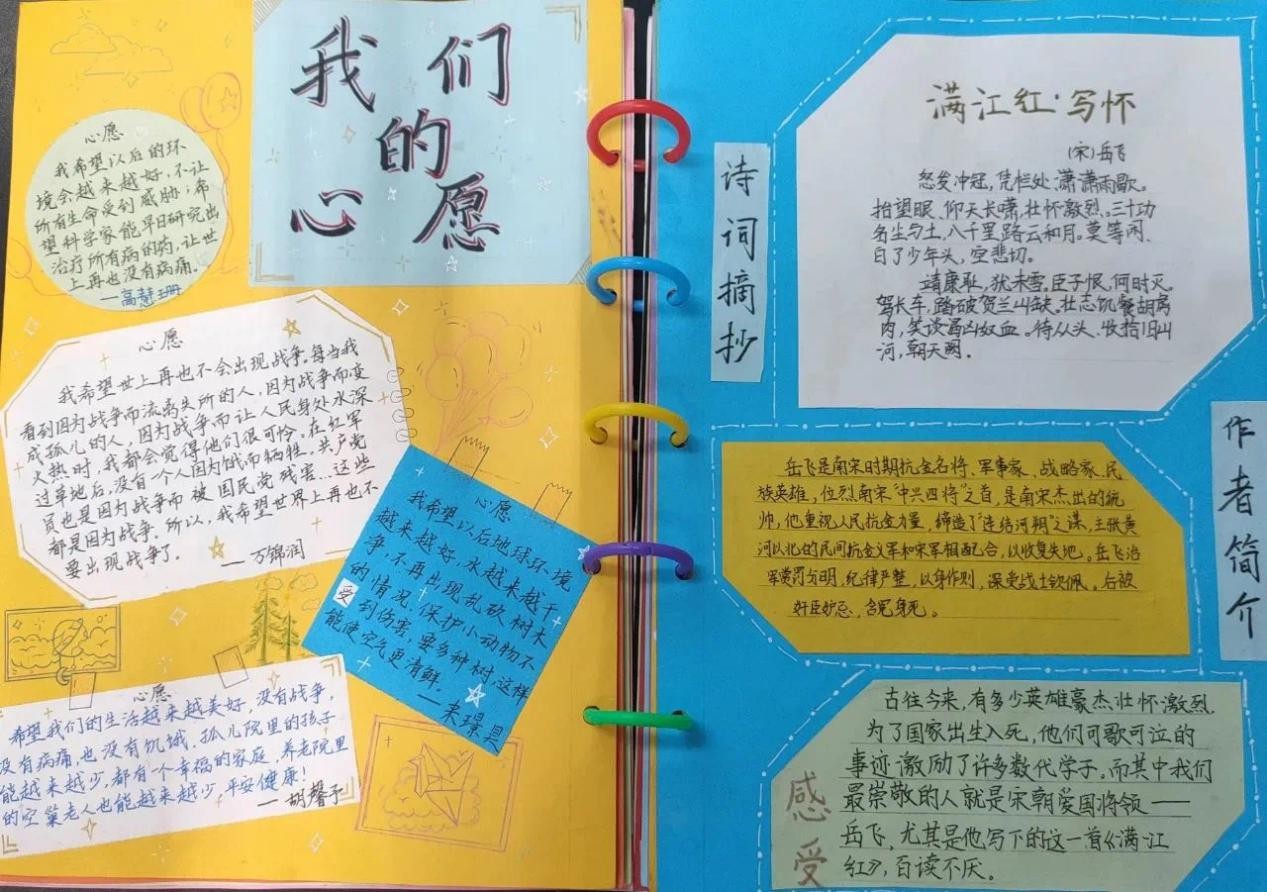 我们
的
心愿
心愿
我希望以后的环
境会越来越好，不让
所有生命受到威胁；希
望科学家能早日研究出
治疗所有病的药，让世
上再也没有病痛。
—高慧珊
心愿
我希望世上再也不会出现战争。每当我
看到因为战争而流离失所的人，因为战争而变
成孤儿的人，因为战争而让人民身处水深
火热时，我都会觉得他们很可怜。在红军
过草地后，没有一个人因为饿而牺牲。共产党
员也是因为战争而被国民党残害……这些
都是因为战争。所以，我希望世界上再也不
要出现战争了。
—万锦润
心愿
我希望以后地球环境
越来越好，水越来越干
净，不再出现乱砍树木
的情况，保护小动物不
受到伤害，要多种树，这样
能使空气更清鲜。
—末璟昊
心愿
希望我们的生活越来越美好，没有战争，
没有病痛，也没有饥饿，孤儿院里的孩子
能越来越少，都有一个幸福的家庭，养老院里
的空巢老人也能越来越少，平安健康！
—胡馨予
诗词摘抄
满江红·写怀
（宋）岳飞
怒发冲冠，凭栏处、潇潇雨歇。
抬望眼、仰天长啸，壮怀激烈。三十功
名尘与土，八千里路云和月。莫等闲、
白了少年头，空悲切。
靖康耻，犹未雪。臣子恨，何时灭。
驾长车，踏破贺兰山缺。壮志饥餐胡虏
肉，笑谈渴饮匈奴血。待从头、收拾旧山
河，朝天阙。
作者简介
岳飞是南宋时期抗金名将、军事家、战略家、民
族英雄，位列南宋“中兴四将”之首，是南宋杰出的统
帅，他重视人民抗金力量，缔造了“连结河朔”之谋，主张黄
河以北的民间抗金义军和宋军相配合，以收复失地。岳飞治
军赏罚分明，纪律严整，以身作则，深受战士钦佩。后被
奸臣妒忌，含冤身死。
感受
古往今来，有多少英雄豪杰，壮怀激烈，
为了国家出生入死，他们可歌可泣的
事迹，激励了许多数代学子。而其中我们
最崇敬的人就是宋朝爱国将领——
岳飞，尤其是他写下的这一首《满江
红》，百读不厌。